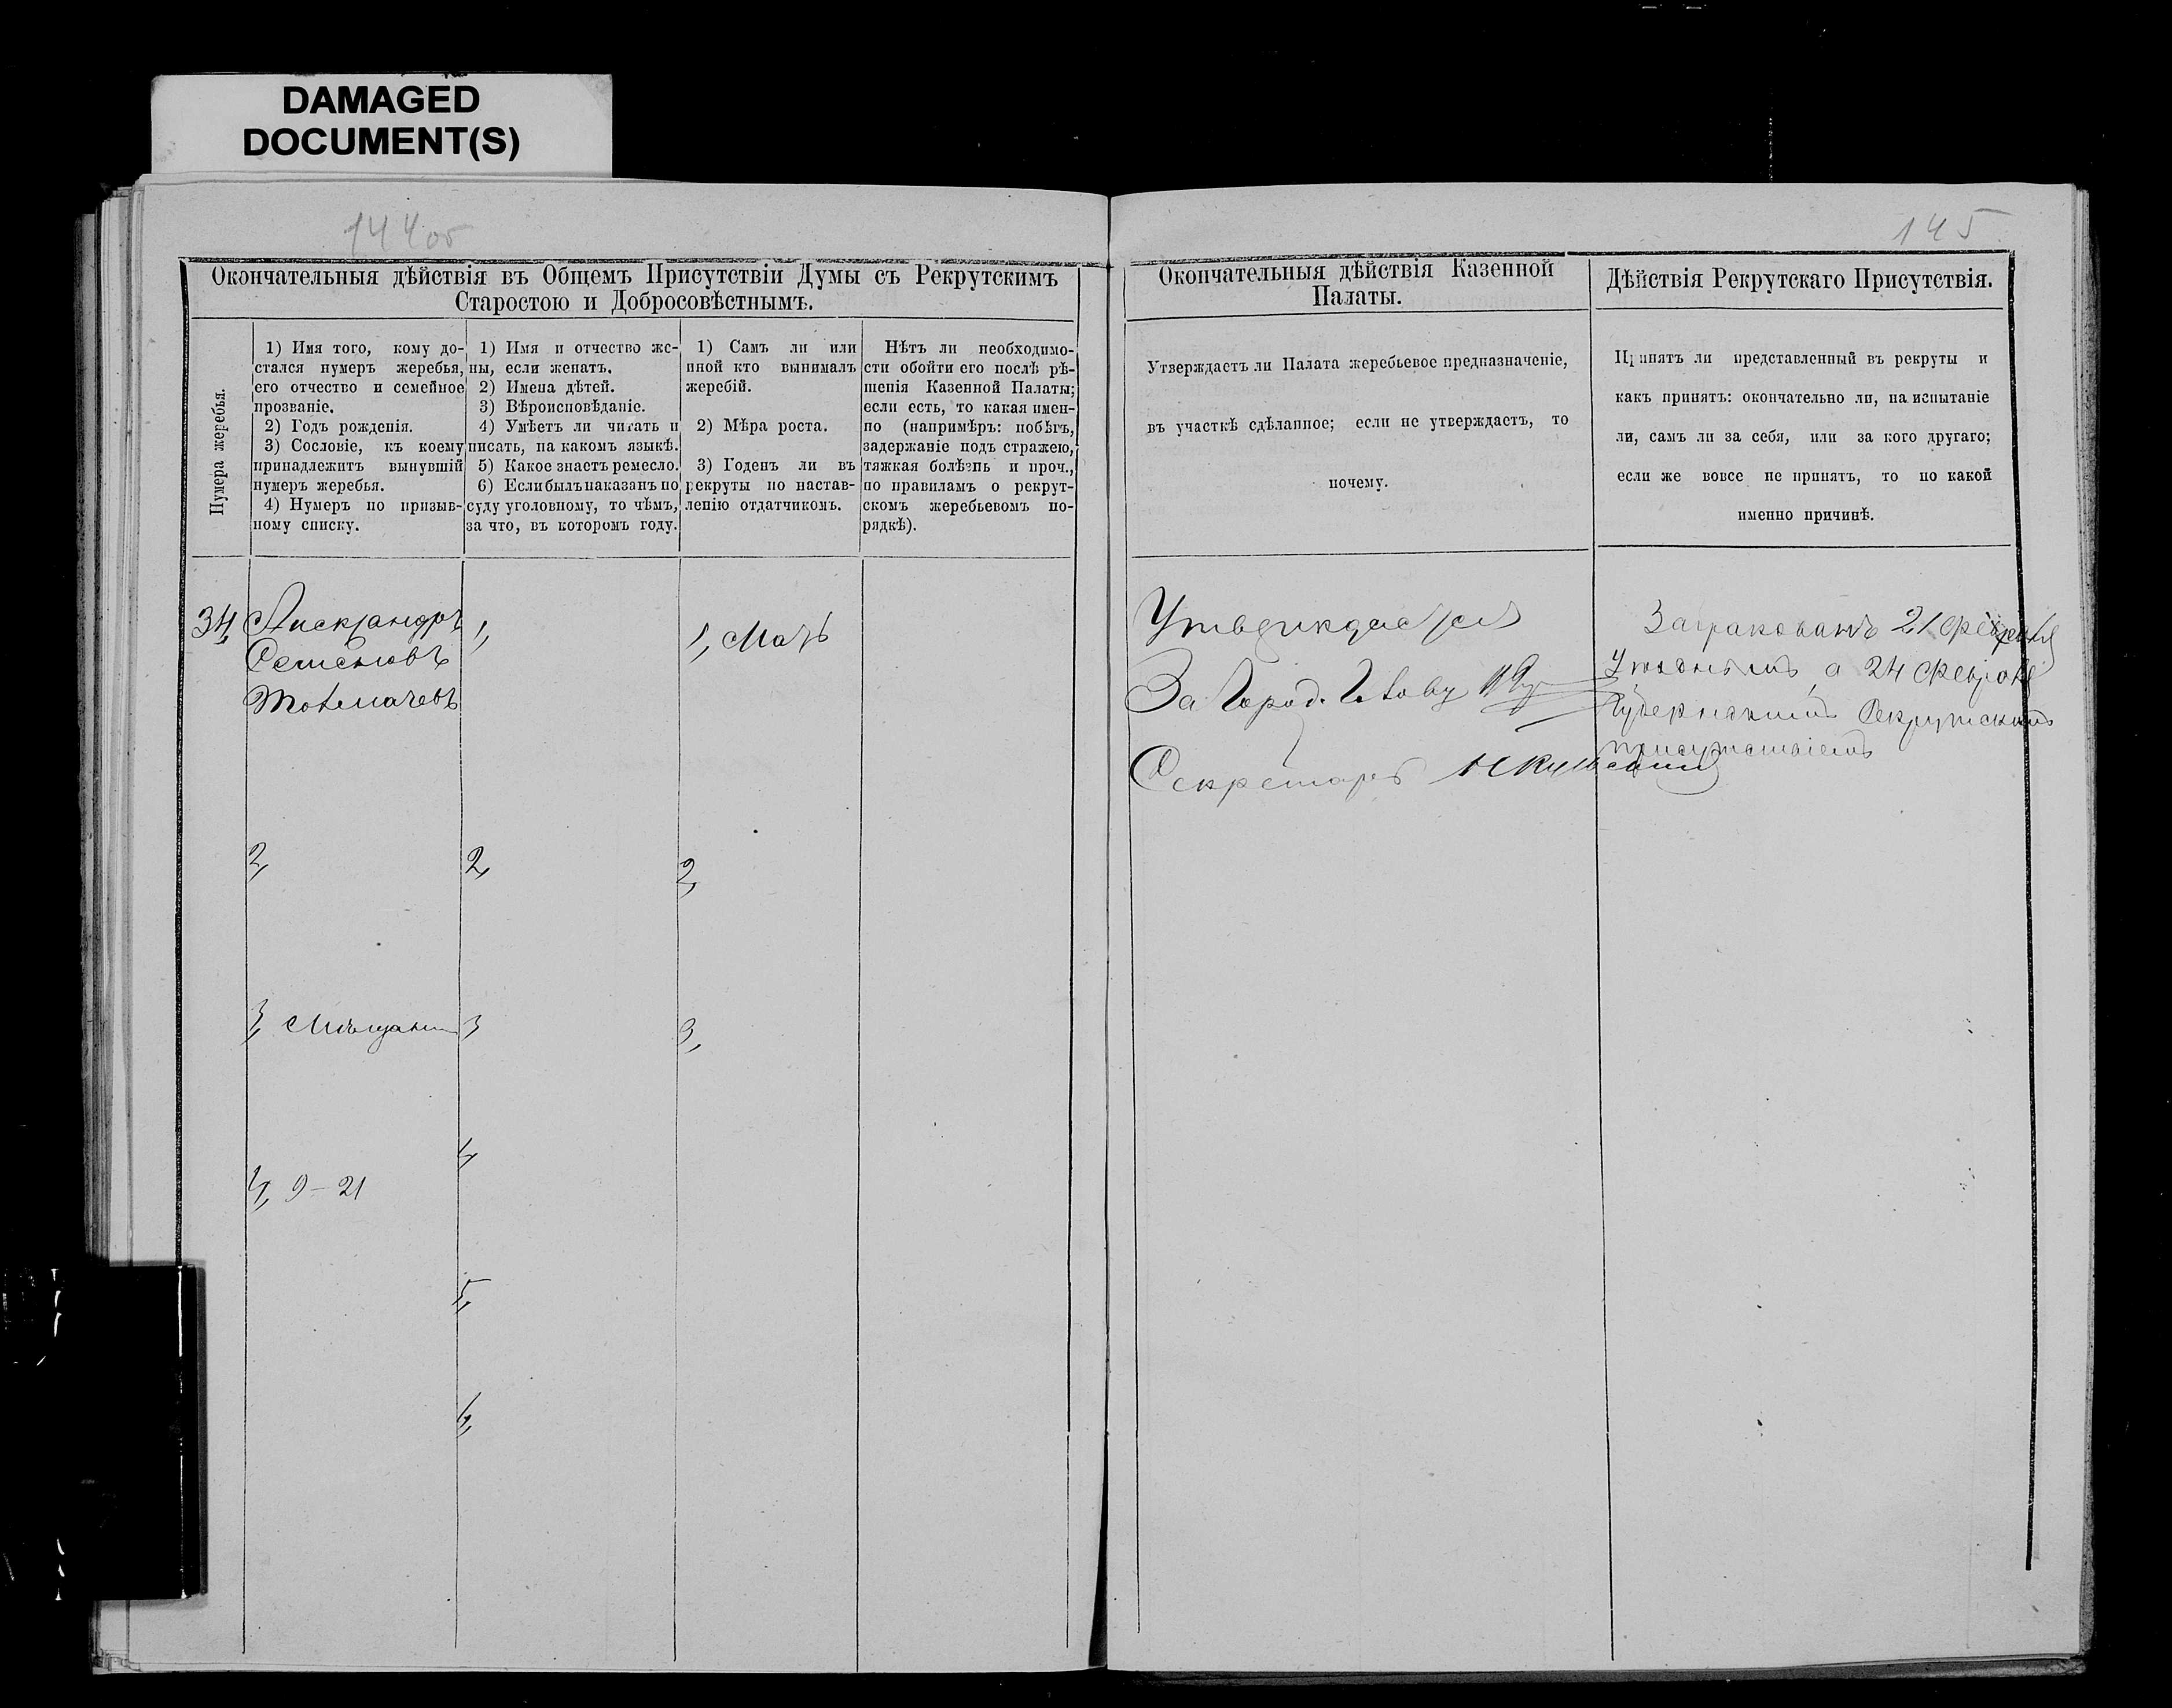 DAMAGED
DOCUMENT(S)
144об
Окончательныя дѣйствія въ Общемъ Присутствіи Думы съ Рекрутскимъ
Старостою и Добросовѣстнымъ.
Нумера жеребья.
1) Имя того, кому до-
стался нумеръ жеребья,
его отчество и семейное
прозваніе.
2) Годъ рожденія.
3) Сословіе, къ коему
принадлежитъ вынувшій
нумеръ жеребья.
4) Нумеръ по призыв-
ному списку.
1) Имя и отчество же-
ны, если женатъ.
2) Имена дѣтей.
3) Вѣроисповѣданіе.
4) Умѣетъ ли читать и
писать, на какомъ языкѣ.
5) Какое знаетъ ремесло.
6) Если былъ наказанъ по
суду уголовному, то чѣмъ,
за что, въ которомъ году.
1) Самъ ли или
иной кто вынималъ
жеребій.
2) Мѣра роста.
3) Годенъ ли въ
рекруты по настав-
ленію отдатчикомъ.
Нѣтъ ли необходимо-
сти обойти его послѣ рѣ-
шенія Казенной Палаты;
если есть, то какая имен-
но (напримѣръ: побѣгъ,
задержаніе подъ стражею,
тяжкая болѣзнь и проч.,
по правиламъ о рекрут-
скомъ жеребьевомъ по-
рядкѣ).
34,
Александръ
Семеновъ
Толмачевъ
2,
3, Мѣщанин
4, 9-21
1,
2,
3
4,
5,
6,
1, Мать
2,
3,
145
Окончательныя дѣйствія Казенной
Палаты.
Утверждаетъ ли Палата жеребьевое предназначеніе,
въ участкѣ сдѣланное; если не утверждаетъ, то
почему.
Утверждается
За Город. Голову
Секретарь
Дѣйствія Рекрутскаго Присутствія.
Принятъ ли представленный въ рекруты и
какъ принятъ: окончательно ли, на испытаніе
ли, самъ ли за себя, или за кого другаго;
если же вовсе не принятъ, то по какой
именно причинѣ.
Забракованъ 21 февраля
Уѣзднымъ, а 24 февраля
Губернскимъ Рекрутскимъ
присутствіемъ